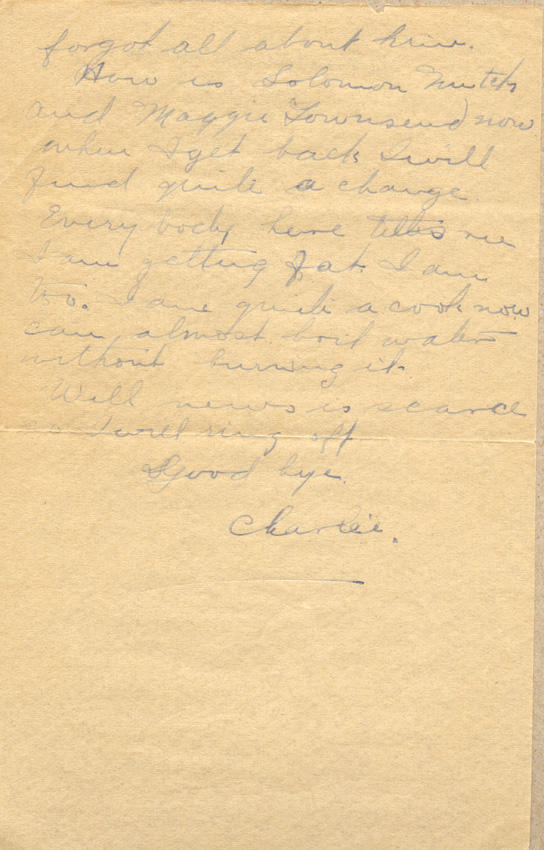 forgot all about him.
How is Solomon
and Maggie Townsend now
when I get back I will
find quite a change.
Every body here tells me
I am getting fat. I am
too. I am quite a cook now
can almost boil water
without burning it.
Well news is scarce
so I will ring off
Good bye.
Charlie.